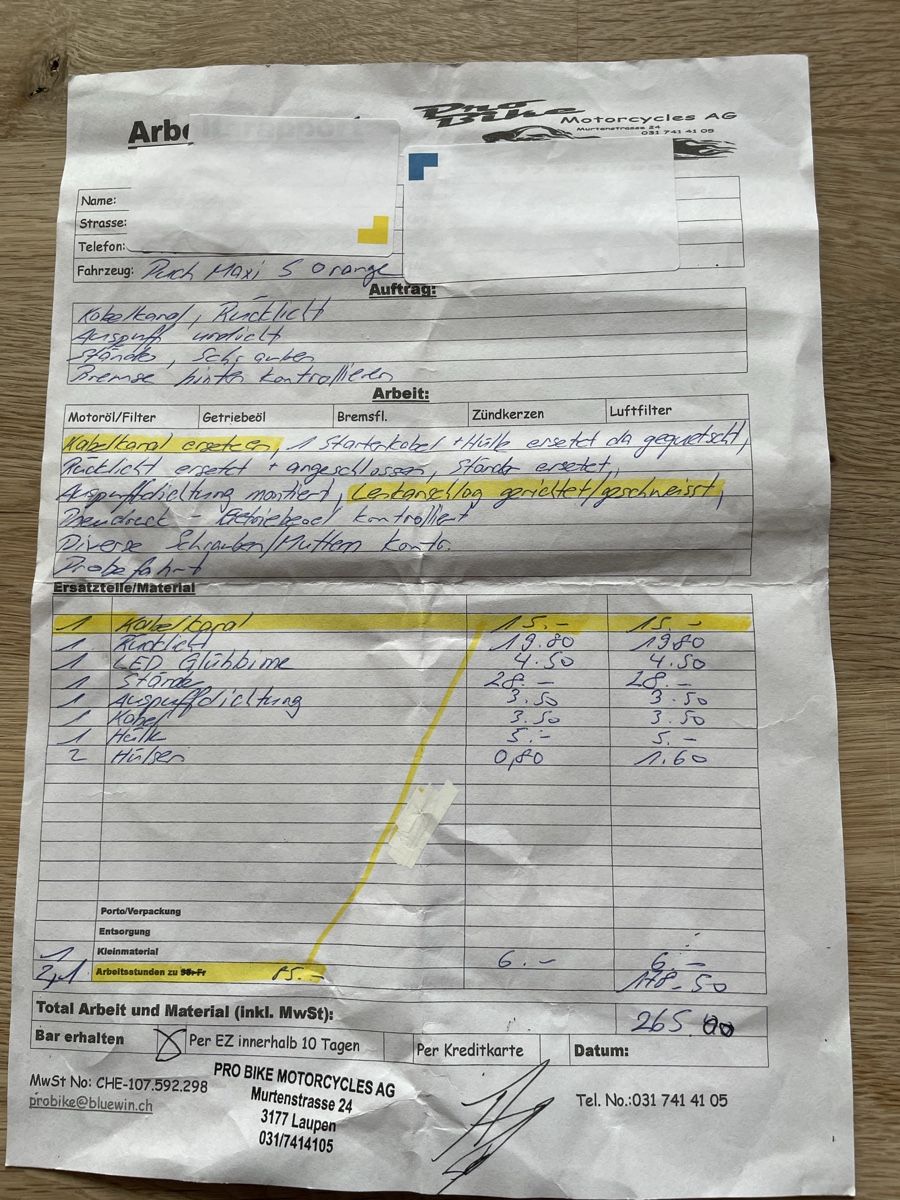 Arbeitsrapport
Pro Bike Motorcycles AG
Murtenstrasse 24
031 741 41 05
Name:
Strasse:
Telefon:
Fahrzeug: Puch Maxi S Orange
Auftrag:
Kabelkanal, Rücklicht
Auspuff undicht
Ständer, Schrauben
Bremse hinten kontrollieren
Arbeit:
Motoröl/Filter Getriebeöl Bremsfl. Zündkerzen Luftfilter
Kabelkanal ersetzen, 1 Starterkabel + Hülle ersetzt da gequetscht,
Rücklicht ersetzt + angeschlossen, Ständer ersetzt,
Auspuffdichtung montiert, Lenkanschlag gerichtet/geschweisst,
kontrolliert
Diverse Schrauben/Muttern Kontr.
Probefahrt
Ersatzteile/Material
1 Kabelkanal 15.- 15.-
1 Rücklicht 19.80 19.80
1 LED Glühbirne 4.50 4.50
1 Ständer 28.- 28.-
1 Auspuffdichtung 3.50 3.50
1 Kabel 3.50 3.50
1 Hülle 5.- 5.-
2 Hülsen 0,80 1.60
Porto/Verpackung
Entsorgung
1 Kleinmaterial 6.- 6.-
2,1 Arbeitsstunden zu 98.-Fr 85.- 178.50
Total Arbeit und Material (inkl. MwSt): 265.00
Bar erhalten Per EZ innerhalb 10 Tagen Per Kreditkarte Datum:
MwSt No: CHE-107.592.298
probike@bluewin.ch
PRO BIKE MOTORCYCLES AG
Murtenstrasse 24
3177 Laupen
031/7414105
Tel. No.:031 741 41 05